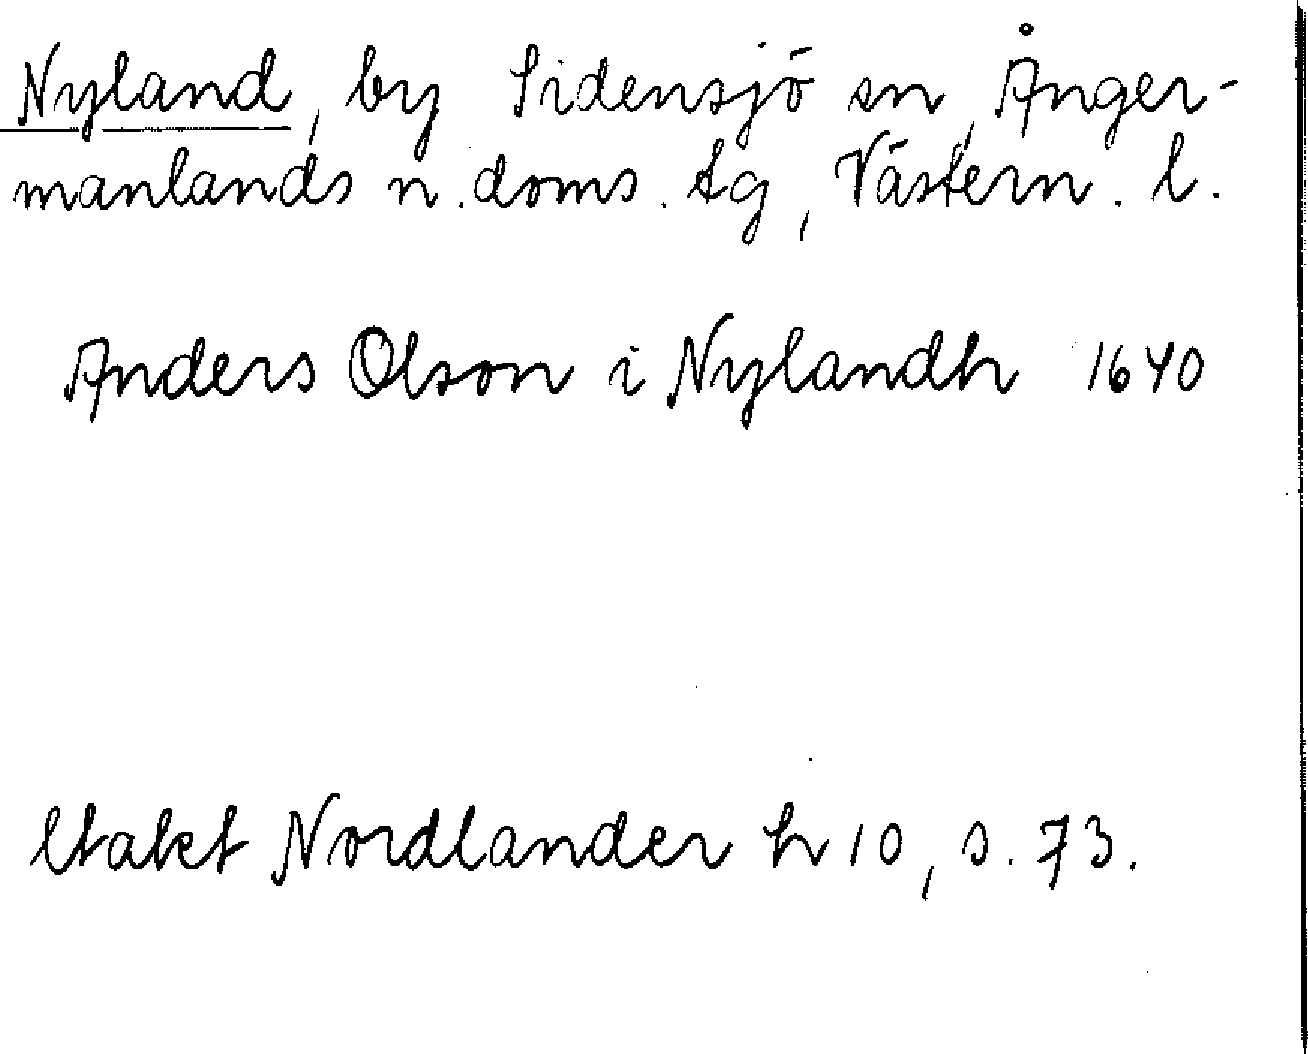 Nyland, by Sidensjö sn, Ånger-
manlands n. doms. tg, Västern. l.
Anders Olson i Nylandh 1640
Utakt Nordlander h 10, s. 73.